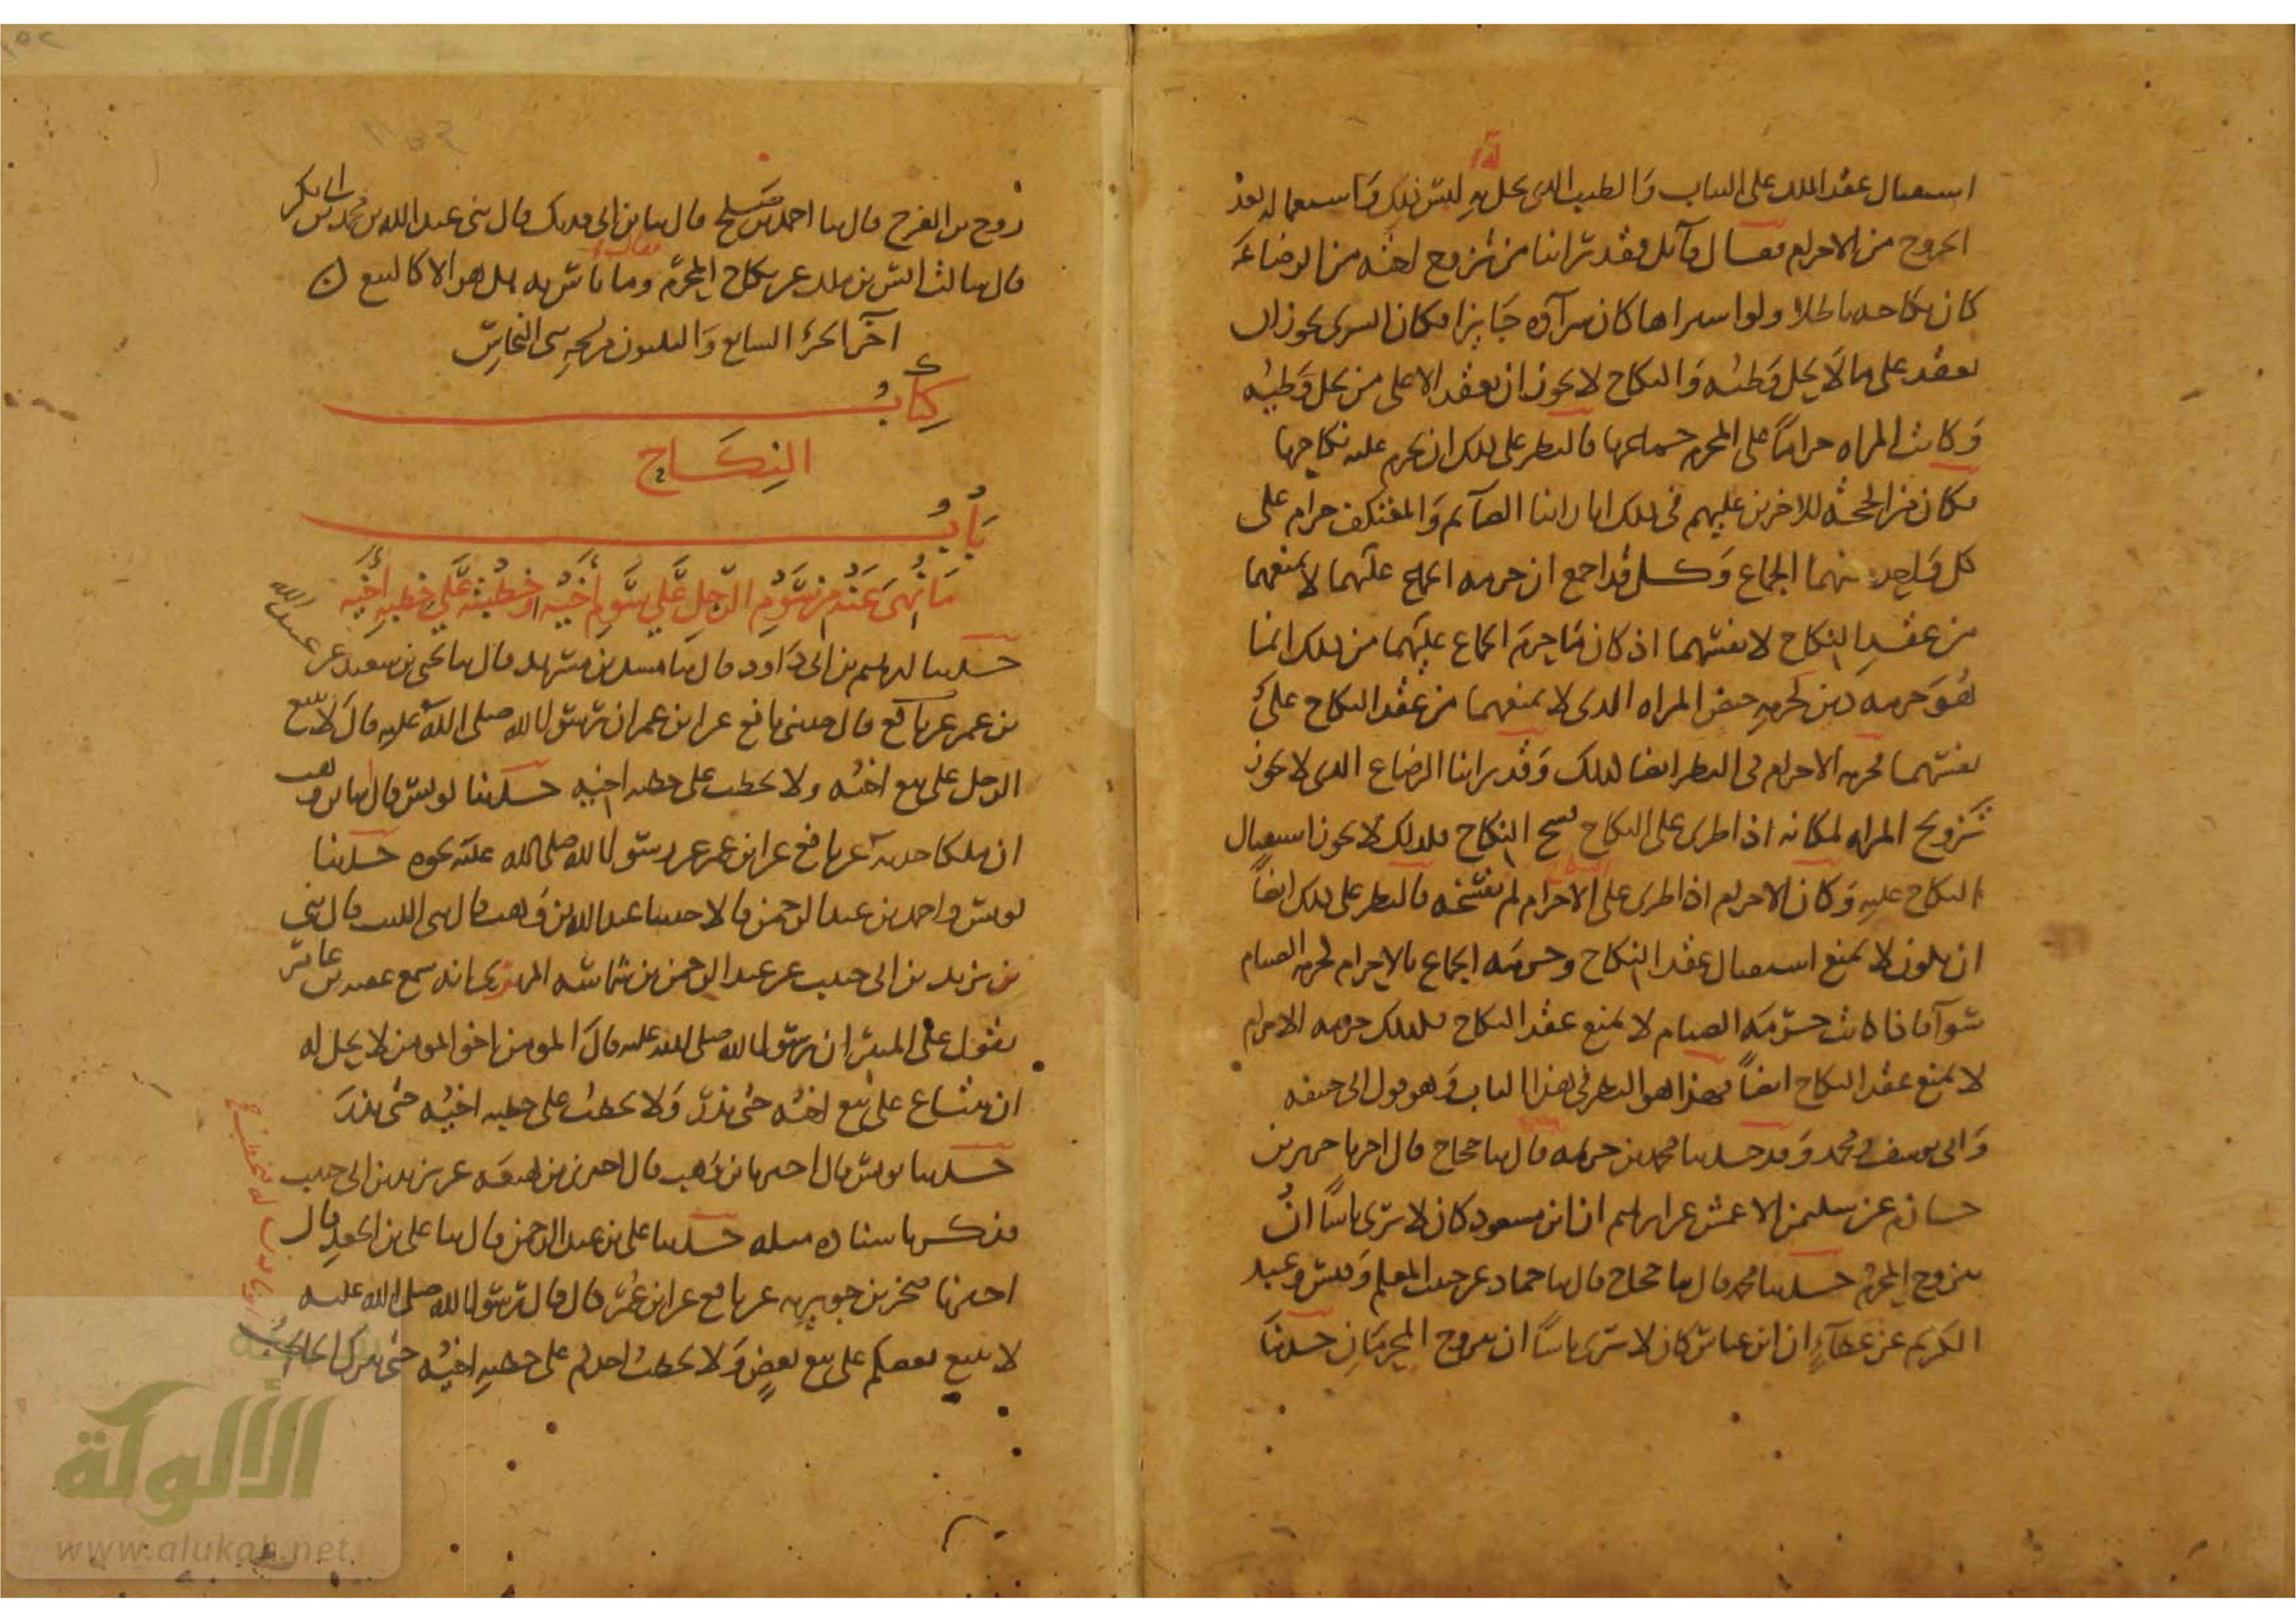 استعمال عقد الملك على الثياب والطيب الذي يحل به لبس ذلك واستعماله بعد
الخروج من الاحرام فقال قائل فقد رأينا من تزوج اخته من الرضاعة
كان نكاحه باطلا ولو اشتراها كان شراؤه جايزا فكان الشرى يجوز ان
يعقد على ما لا يحل وطئه والنكاح لا يجوز ان يعقد الا على من يحل وطيه
وكانت المراه حراما على المحرم جماعها فالنظر على ذلك ان يحرم عليه نكاحها
فكان من الحجة للاخرين عليهم في ذلك انا راينا الصائم والمعتكف حرام على
كل واحد منهما الجماع وكل قد اجمع ان حرمة الجماع عليهما لا يمنعهما
من عقد النكاح لانفسهما اذ كان ما حرم الجماع عليهما من ذلك انما
هو حرمة دين كحرمة حيض المراه الذي لا يمنعها من عقد النكاح على
نفسها فحرمة الاحرام في النظر ايضا كذلك وقد راينا الرضاع الذي لا يجوز
تزويج المراه لمكانه اذا طرى على النكاح فسخ النكاح فلذلك لا يجوز استقبال
النكاح عليه وكان الاحرام اذا طرى على النكاح لم يفسخه فالنظر على ذلك ايضا
ان يكون لا يمنع استقبال عقد النكاح وحرمة الجماع بالاحرام كحرمة الصيام
سوآ فاذا كانت حرمة الصيام لا يمنع عقد النكاح فكذلك حرمة الاحرام
لا يمنع عقد النكاح ايضا فهذا هو النظر في هذا الباب وهو قول ابي حنيفة
وابي يوسف ومحمد وقد حدثنا محمد بن خزيمة قال ثنا حجاج قال اخبرنا جرير بن
حازم عن سليمن الاعمش عن ابراهيم ان ابن مسعود كان لا يرى باسا ان
يتزوج المحرم حدثنا محمد قال ثنا حجاج قال ثنا حماد عن حبيب المعلم وقيس وعبد
الكريم عن عطاء ان ابن عباس كان لا يرى باسا ان يتزوج المحرمان حدثنا
روح بن الفرج قال ثنا احمد بن صالح قال ثنا ابن ابي فديك قال ثني عبد الله بن محمد بن ابي بكر
قال سالت انس بن ملك عن نكاح المحرم فقال وما باس به هل هو الا كالبيع
آخر الجزء السابع والثلثون من تجزية النحاس
كتاب
النكاح
باب
ما نهي عنه من سوم الرجل على سوم اخيه او خطبته على خطبة اخيه
حدثنا ابرهيم بن ابي داود قال ثنا مسدد بن مسرهد قال ثنا يحيى بن سعيد عن عبيد الله
بن عمر عن نافع قال حدثني نافع عن ابن عمر ان رسول الله صلى الله عليه قال لا يبيع
الرجل على بيع اخيه ولا يخطب على خطبة اخيه حدثنا يونس قال ثنا ابن وهب
ان ملكا حدثه عن نافع عن ابن عمر عن رسول الله صلى الله عليه نحوه حدثنا
يونس واحمد بن عبد الرحمن قالا حدثنا عبد الله بن وهب قال ثني الليث قال ثني
بن يزيد بن ابي حبيب عن عبد الرحمن بن شماسة المهري انه سمع عقبة بن عامر
يقول على المنبر ان رسول الله صلى الله عليه قال المومن اخو المومن لا يحل له
ان يبتاع على بيع اخيه حتى يذر ولا يخطب على خطبة اخيه حتى يذر
حدثنا يونس قال اخبرنا ابن وهب قال اخبرني ابن لهيعة عن يزيد بن ابي حبيب
فذكر باسناده مثله حدثنا علي بن عبد الرحمن قال ثنا علي بن الجعد قال
اخبرنا صخر بن جويرية عن نافع عن ابن عمر قال قال رسول الله صلى الله عليه
لا يبيع بعضكم على بيع بعض ولا يخطب احدكم على خطبة اخيه حتى يترك الخاطب
او ياذن له فيخطب
الألوكة
www.alukah.net